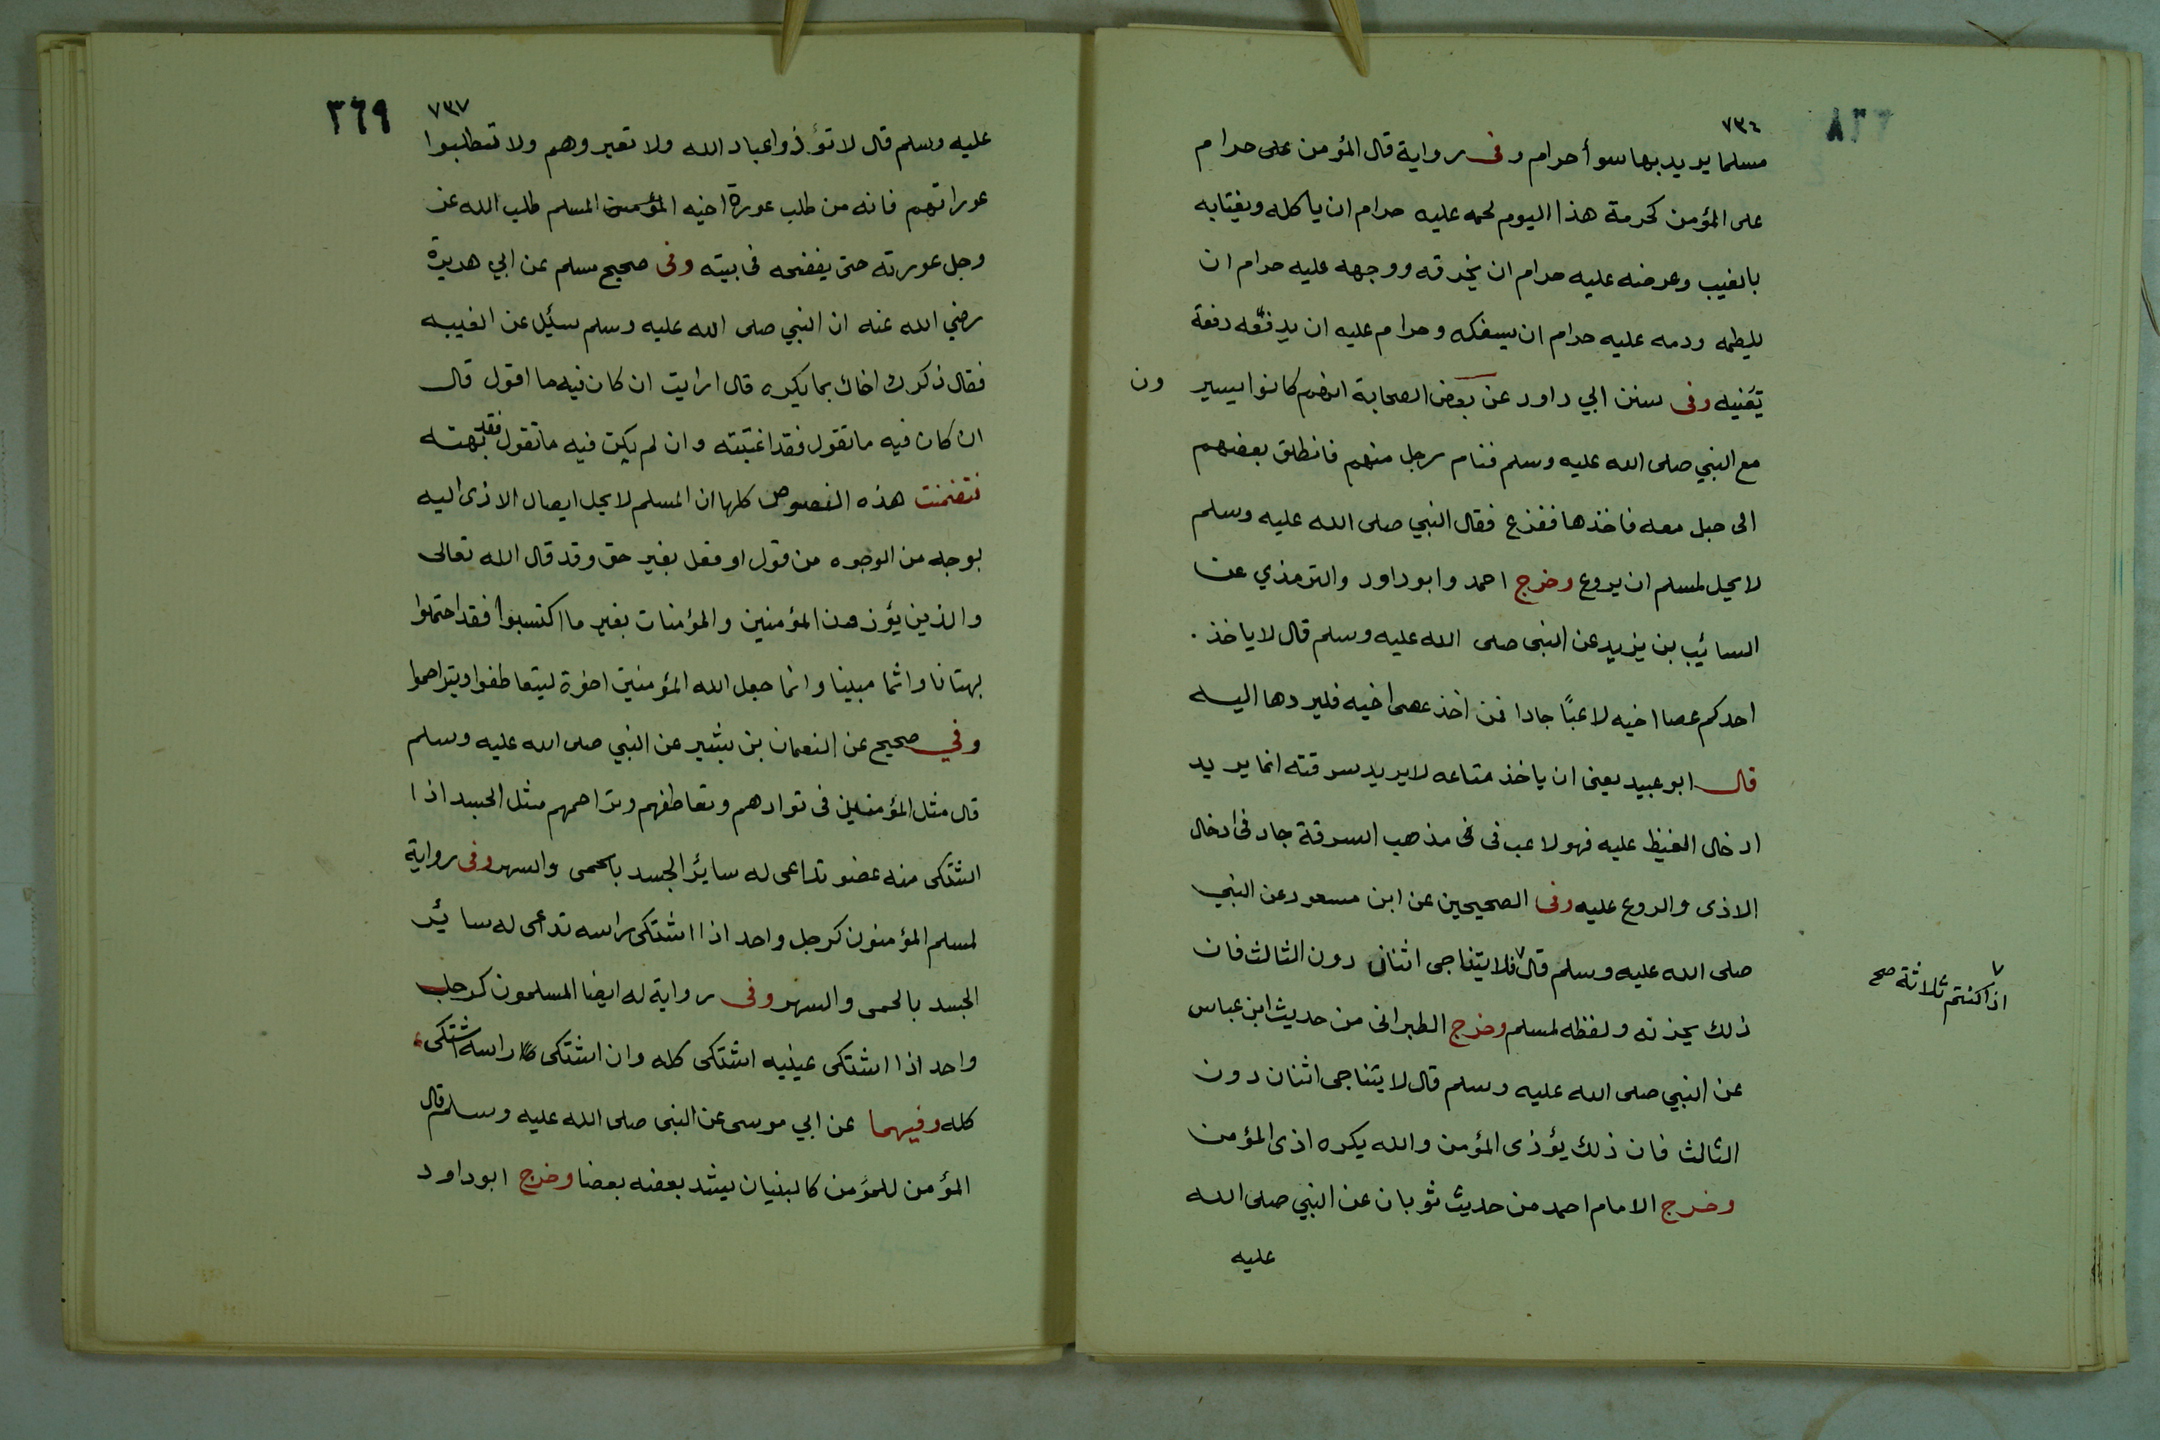 ٧٣٤
مسلما يريد بها سوأ حرام وفى رواية قال المؤمن على حرام
على المؤمن كحرمة هذا اليوم لحمه عليه حرام ان ياكله ويغتابه
بالغيب وعرضه عليه حرام ان يخرقه ووجهه عليه حرام ان
يلطمه ودمه عليه حرام ان يسفكه وحرام عليه ان يدفعه دفعة
تعنيه وفى سنن ابي داود عن بعض الصحابة انهم كانوا يسيرون
مع النبي صلى الله عليه وسلم فنام رجل منهم فانطلق بعضهم
الى حبل معه فاخذها ففزع فقال النبي صلى الله عليه وسلم
لا يحل لمسلم ان يروع وخرج احمد وابوداود والترمذي عن
السائب بن يزيد عن النبى صلى الله عليه وسلم قال لا ياخذ
احدكم عصا اخيه لاعبًا جادا فمن اخذ عصى اخيه فليردها اليه
قال ابو عبيد يعنى ان ياخذ متاعه لا يريد سرقته انما يريد
ادخال الغيظ عليه فهو لاعب فى فى مذهب السرقة جاد فى ادخال
الاذى والروع عليه وفى الصحيحين عن ابن مسعود عن النبي
صلى الله عليه وسلم قال ٧ فلا يتناجى اثنان دون الثالث فان
٧ اذا كنتم ثلاثة صح
ذلك يحزنه ولفظه لمسلم وخرج الطبرانى من حديث ابن عباس
عن النبي صلى الله عليه وسلم قال لا يتناجى اثنان دون
الثالث فان ذلك يؤذى المؤمن والله يكره اذى المؤمن
وخرج الامام احمد من حديث ثوبان عن النبي صلى الله
عليه
٧٣٧
٣٦٩
عليه وسلم قال لا تؤذوا عباد الله ولا تعيروهم ولا تتطلبوا
عوراتهم فانه من طلب عورة اخيه المؤمن المسلم طلب الله عز
وجل عورته حتى يفضحه فى بيته وفى صحيح مسلم عن ابي هريرة
رضي الله عنه ان النبي صلى الله عليه وسلم سئيل عن الغيبه
فقال ذكرك اخاك بما يكره قال ارايت ان كان فيه ما اقول قال
ان كان فيه ما تقول فقد اغتبته وان لم يكن فيه ما تقول فقد بهته
فتضمنت هذه النصوص كلها ان المسلم لا يحل ايصال الاذى اليه
بوجه من الوجوه من قول او فعل بغير حق وقد قال الله تعالى
والذين يؤذون المؤمنين والمؤمنات بغير ما اكتسبوا فقد احتملوا
بهتانا واثما مبينا وانما جعل الله المؤمنين اخوة ليتعاطفوا ويتراحموا
وفي صحيح عن النعمان بن بشير عن النبي صلى الله عليه وسلم
قال مثل المؤمنين فى توادهم وتعاطفهم وتراحمهم مثل الجسد اذا
اشتكى منه عضو تداعى له سائر الجسد بالحمى والسهر وفى رواية
لمسلم المؤمنون كرجل واحد اذا اشتكى راسه تدعى له سائر
الجسد بالحمى والسهر وفى رواية له ايضا المسلمون كرجل
واحد اذا اشتكى عينيه اشتكى كله وان اشتكى راسه اشتكى
كله وفيهما عن ابي موسى عن النبى صلى الله عليه وسلم قال
المؤمن للمؤمن كالبنيان يشد بعضه بعضا وخرج ابوداود